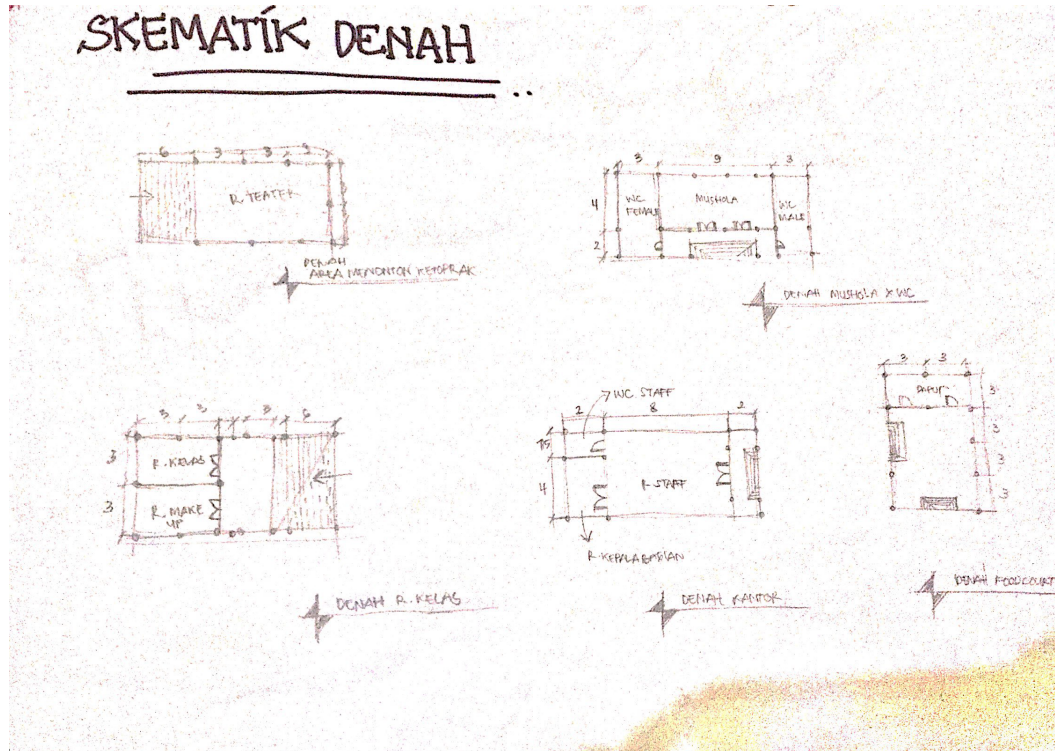 SKEMATIK DENAH
6 3 3 3
R. TEATER
DENAH
AREA MENONTON KETOPRAK
3 9 3
4
2
WC
FEMALE
MUSHOLA
WC
MALE
DENAH MUSHOLA X WC
3 3 3 6
3
3
R. KELAS
R. MAKE
UP
DENAH R. KELAS
WC STAFF
2 8 2
4
R. STAFF
R. KEPALA BAGIAN
DENAH KANTOR
3 3
DAPUR
3
3
3
3
DENAH FOODCOURT